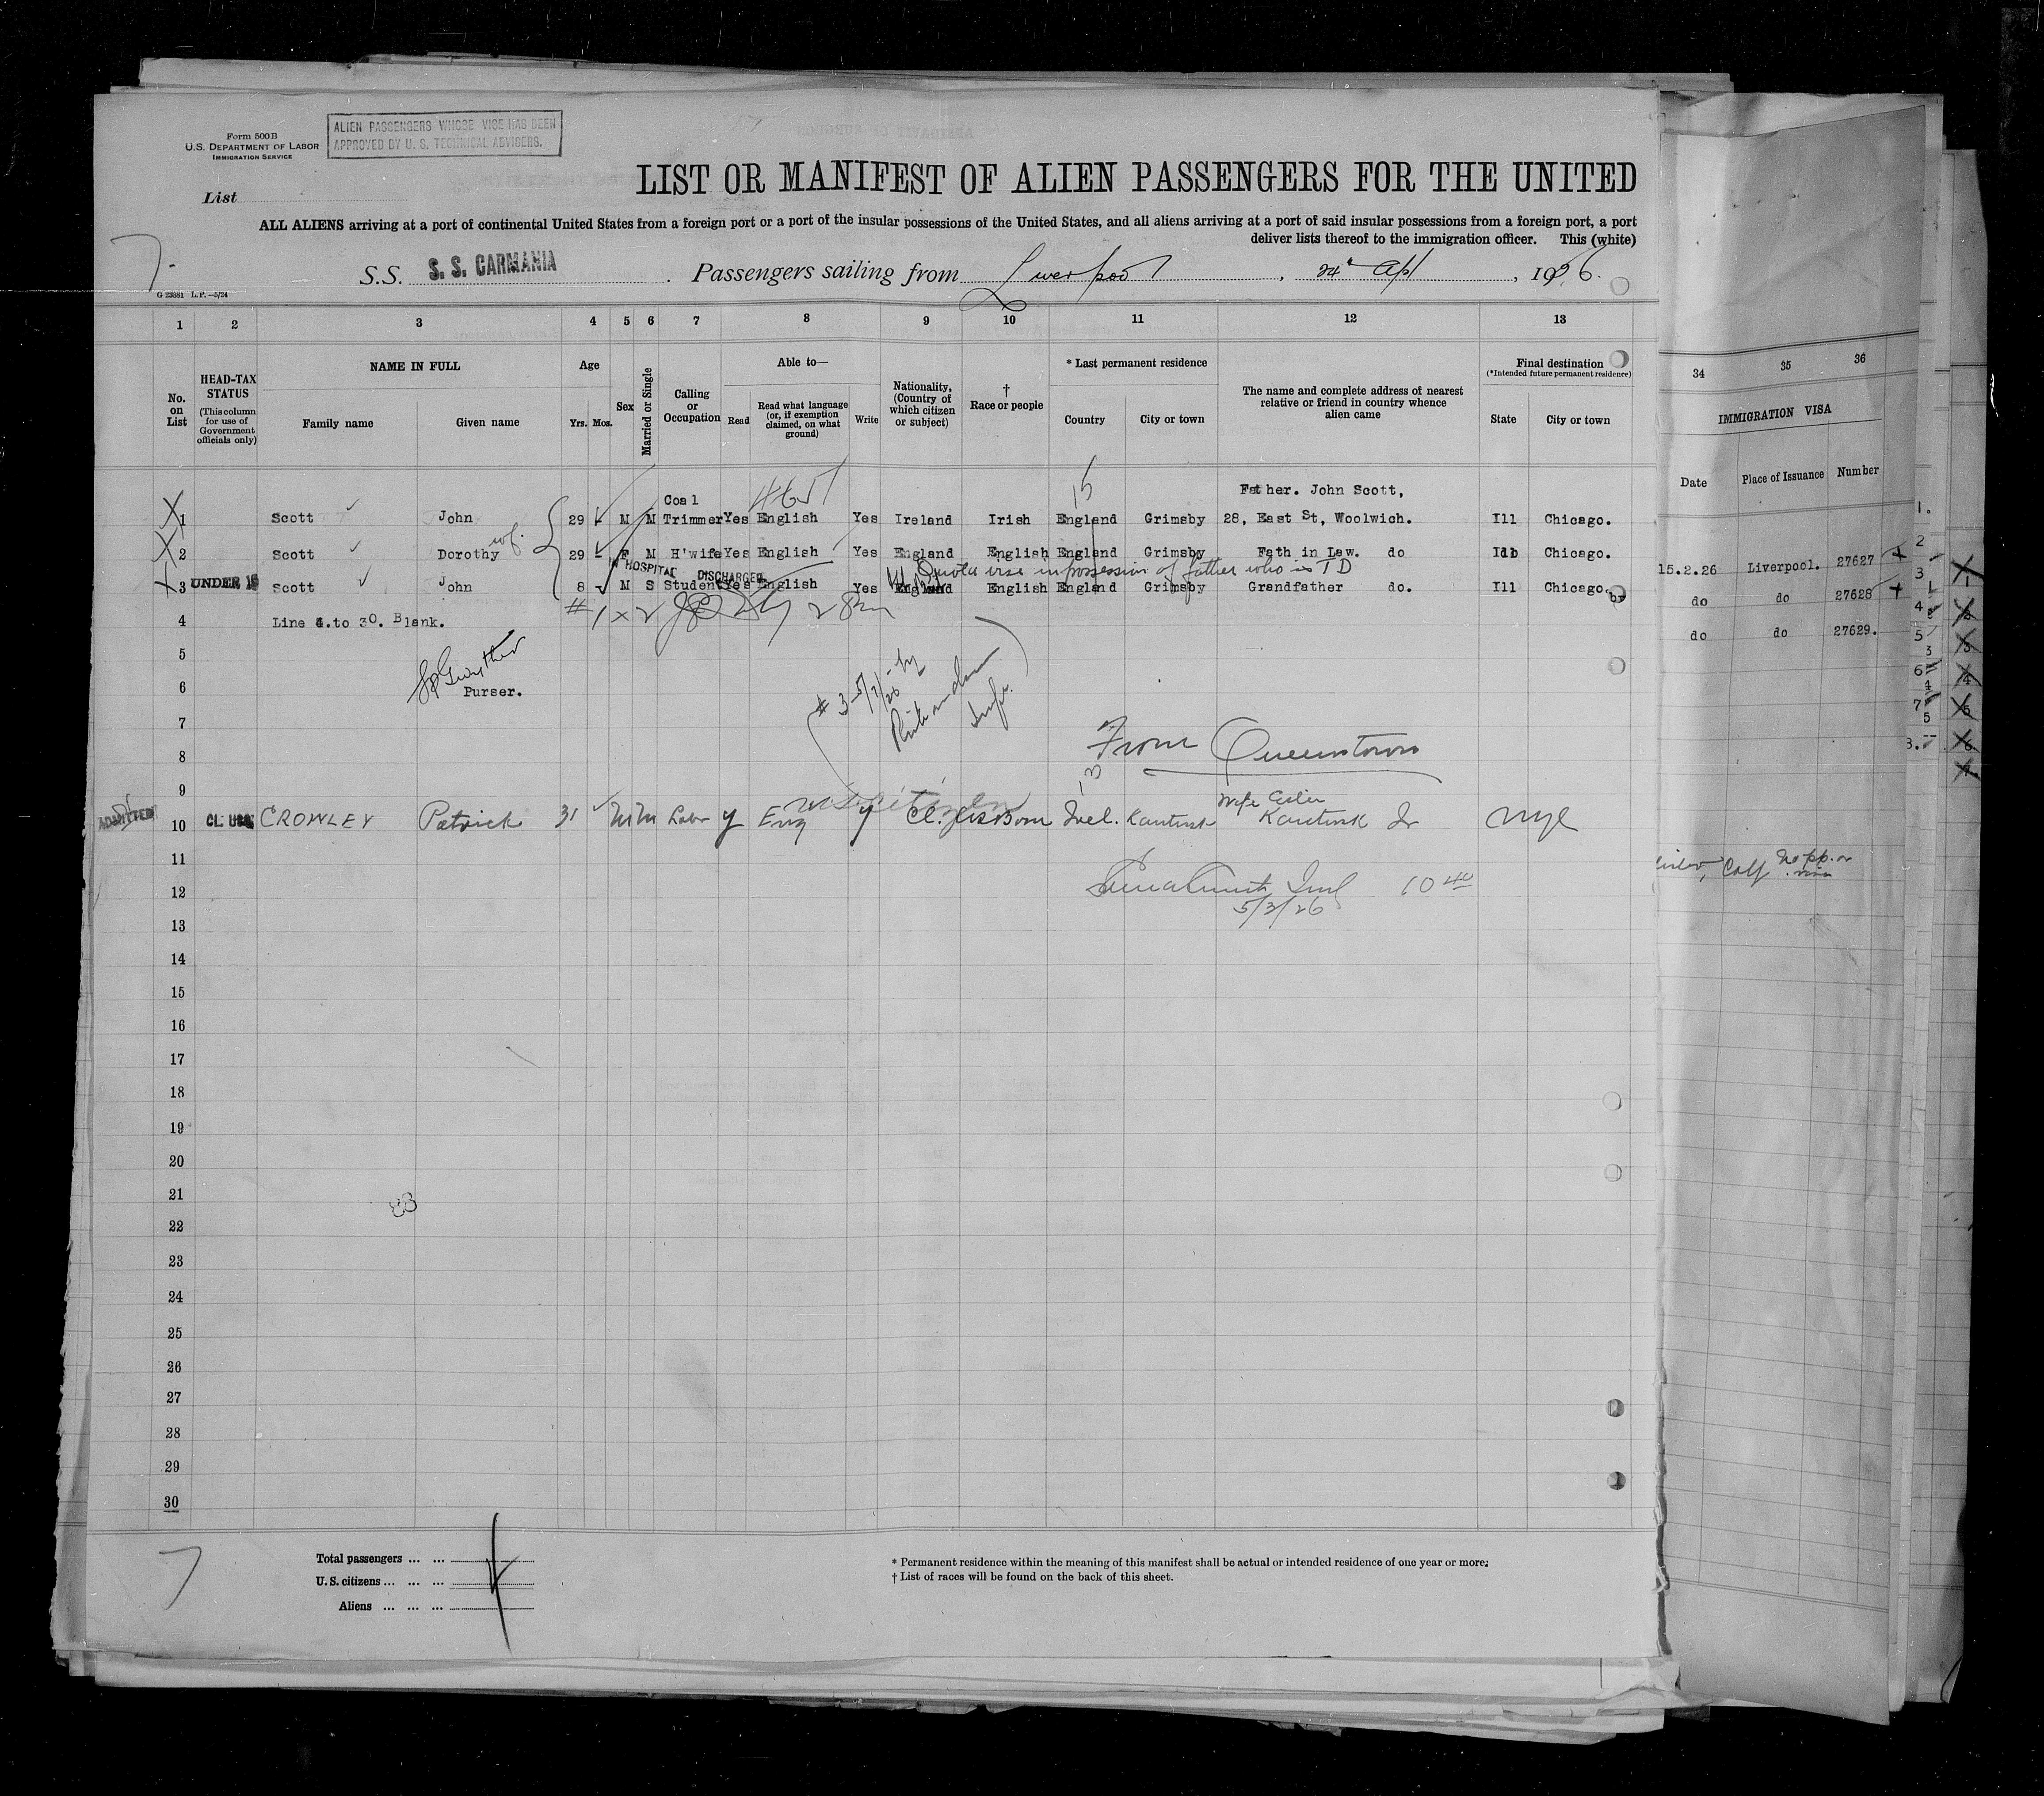 Form 500B
U.S. DEPARTMENT OF LABOR
IMMIGRATION SERVICE
ALIEN PASSENGERS WHOSE VISE HAS BEEN
APPROVED BY U. S. TECHNICAL ADVISERS.
List
LIST OR MANIFEST OF ALIEN PASSENGERS FOR THE UNITED
ALL ALIENS arriving at a port of continental United States from a foreign port or a port of the insular possessions of the United States, and all aliens arriving at a port of said insular possessions from a foreign port, a port
deliver lists thereof to the immigration officer. This (white)
7.
S.S. S. S. CARMANIA. Passengers sailing from Liverpool, 24th Apl, 1926.
G 23881 L.P.—5/24
1 2 3 4 5 6 7 8 9 10 11 12 13
No. on List
HEAD-TAX STATUS
(This column for use of Government officials only)
NAME IN FULL
Family name Given name
Age
Yrs. Mos.
Sex
Married or Single
Calling or Occupation
Able to—
Read
Read what language (or, if exemption claimed, on what ground)
Write
Nationality, (Country of which citizen or subject)
† Race or people
* Last permanent residence
Country City or town
The name and complete address of nearest relative or friend in country whence alien came
Final destination
(*Intended future permanent residence)
State City or town
34 35 36
IMMIGRATION VISA
Date Place of Issuance Number
Coal Father. John Scott,
1 Scott John 29 - M M Trimmer Yes English Yes Ireland Irish England Grimsby 28, East St, Woolwich. Ill Chicago.
wf.
2 Scott Dorothy 29 - F M H'wife Yes English Yes England English England Grimsby Fath in Law. do Chicago.
IN HOSPITAL DISCHARGED
visa in possession of father who is T D
3 UNDER 16 Scott John 8 - M S Student Yes English Yes England English England Grimsby Grandfather do. Ill Chicago.
15.2.26 Liverpool. 27627
do do 27628
do do 27629.
4 Line 4.to 30. Blank.
# 1 x 2
5
6 Purser.
# 3 - 5/7/26 by
7
From Queenstown
8
9
wife
ADMITTED 10 CL USC CROWLEY Patrick 31 M M Labr y Eng y Cl. Born Irel. Kanturk Kanturk Ir NYC
11
Calf No pp. or visa
12 10 40
5/3/26
13
14
15
16
17
18
19
20
21
88
22
23
24
25
26
27
28
29
30
7
Total passengers ... ...
U. S. citizens ... ... ...
Aliens ... ... ...
4
* Permanent residence within the meaning of this manifest shall be actual or intended residence of one year or more.
† List of races will be found on the back of this sheet.